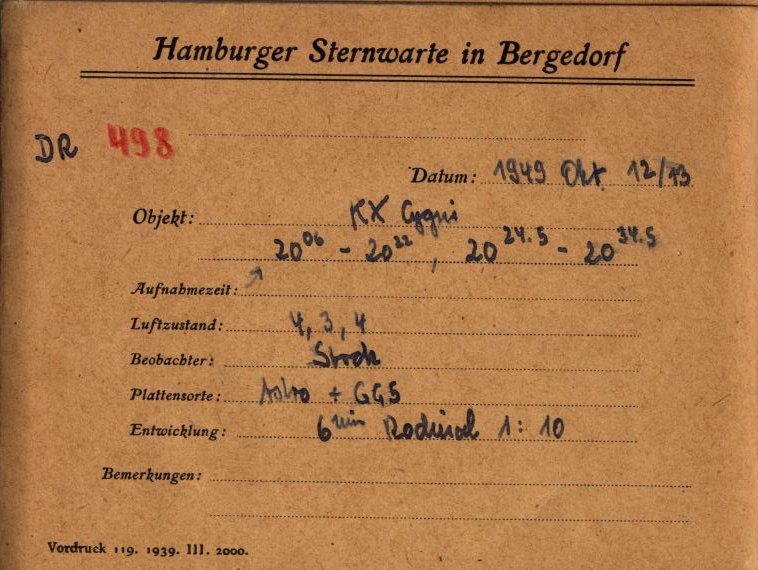 Hamburger Sternwarte in Bergedorf
DR 498
Datum: 1949 Okt 12/13
Objekt: KX Cygni
20 06 - 20 22, 20 24.5 - 20 34.5
Aufnahmezeit:
Luftzustand: 4, 3, 4
Beobachter:
Plattensorte: Astro + GG5
Entwicklung: 6 min Rodinal 1:10
Bemerkungen:
Vordruck 119. 1939. III. 2000.